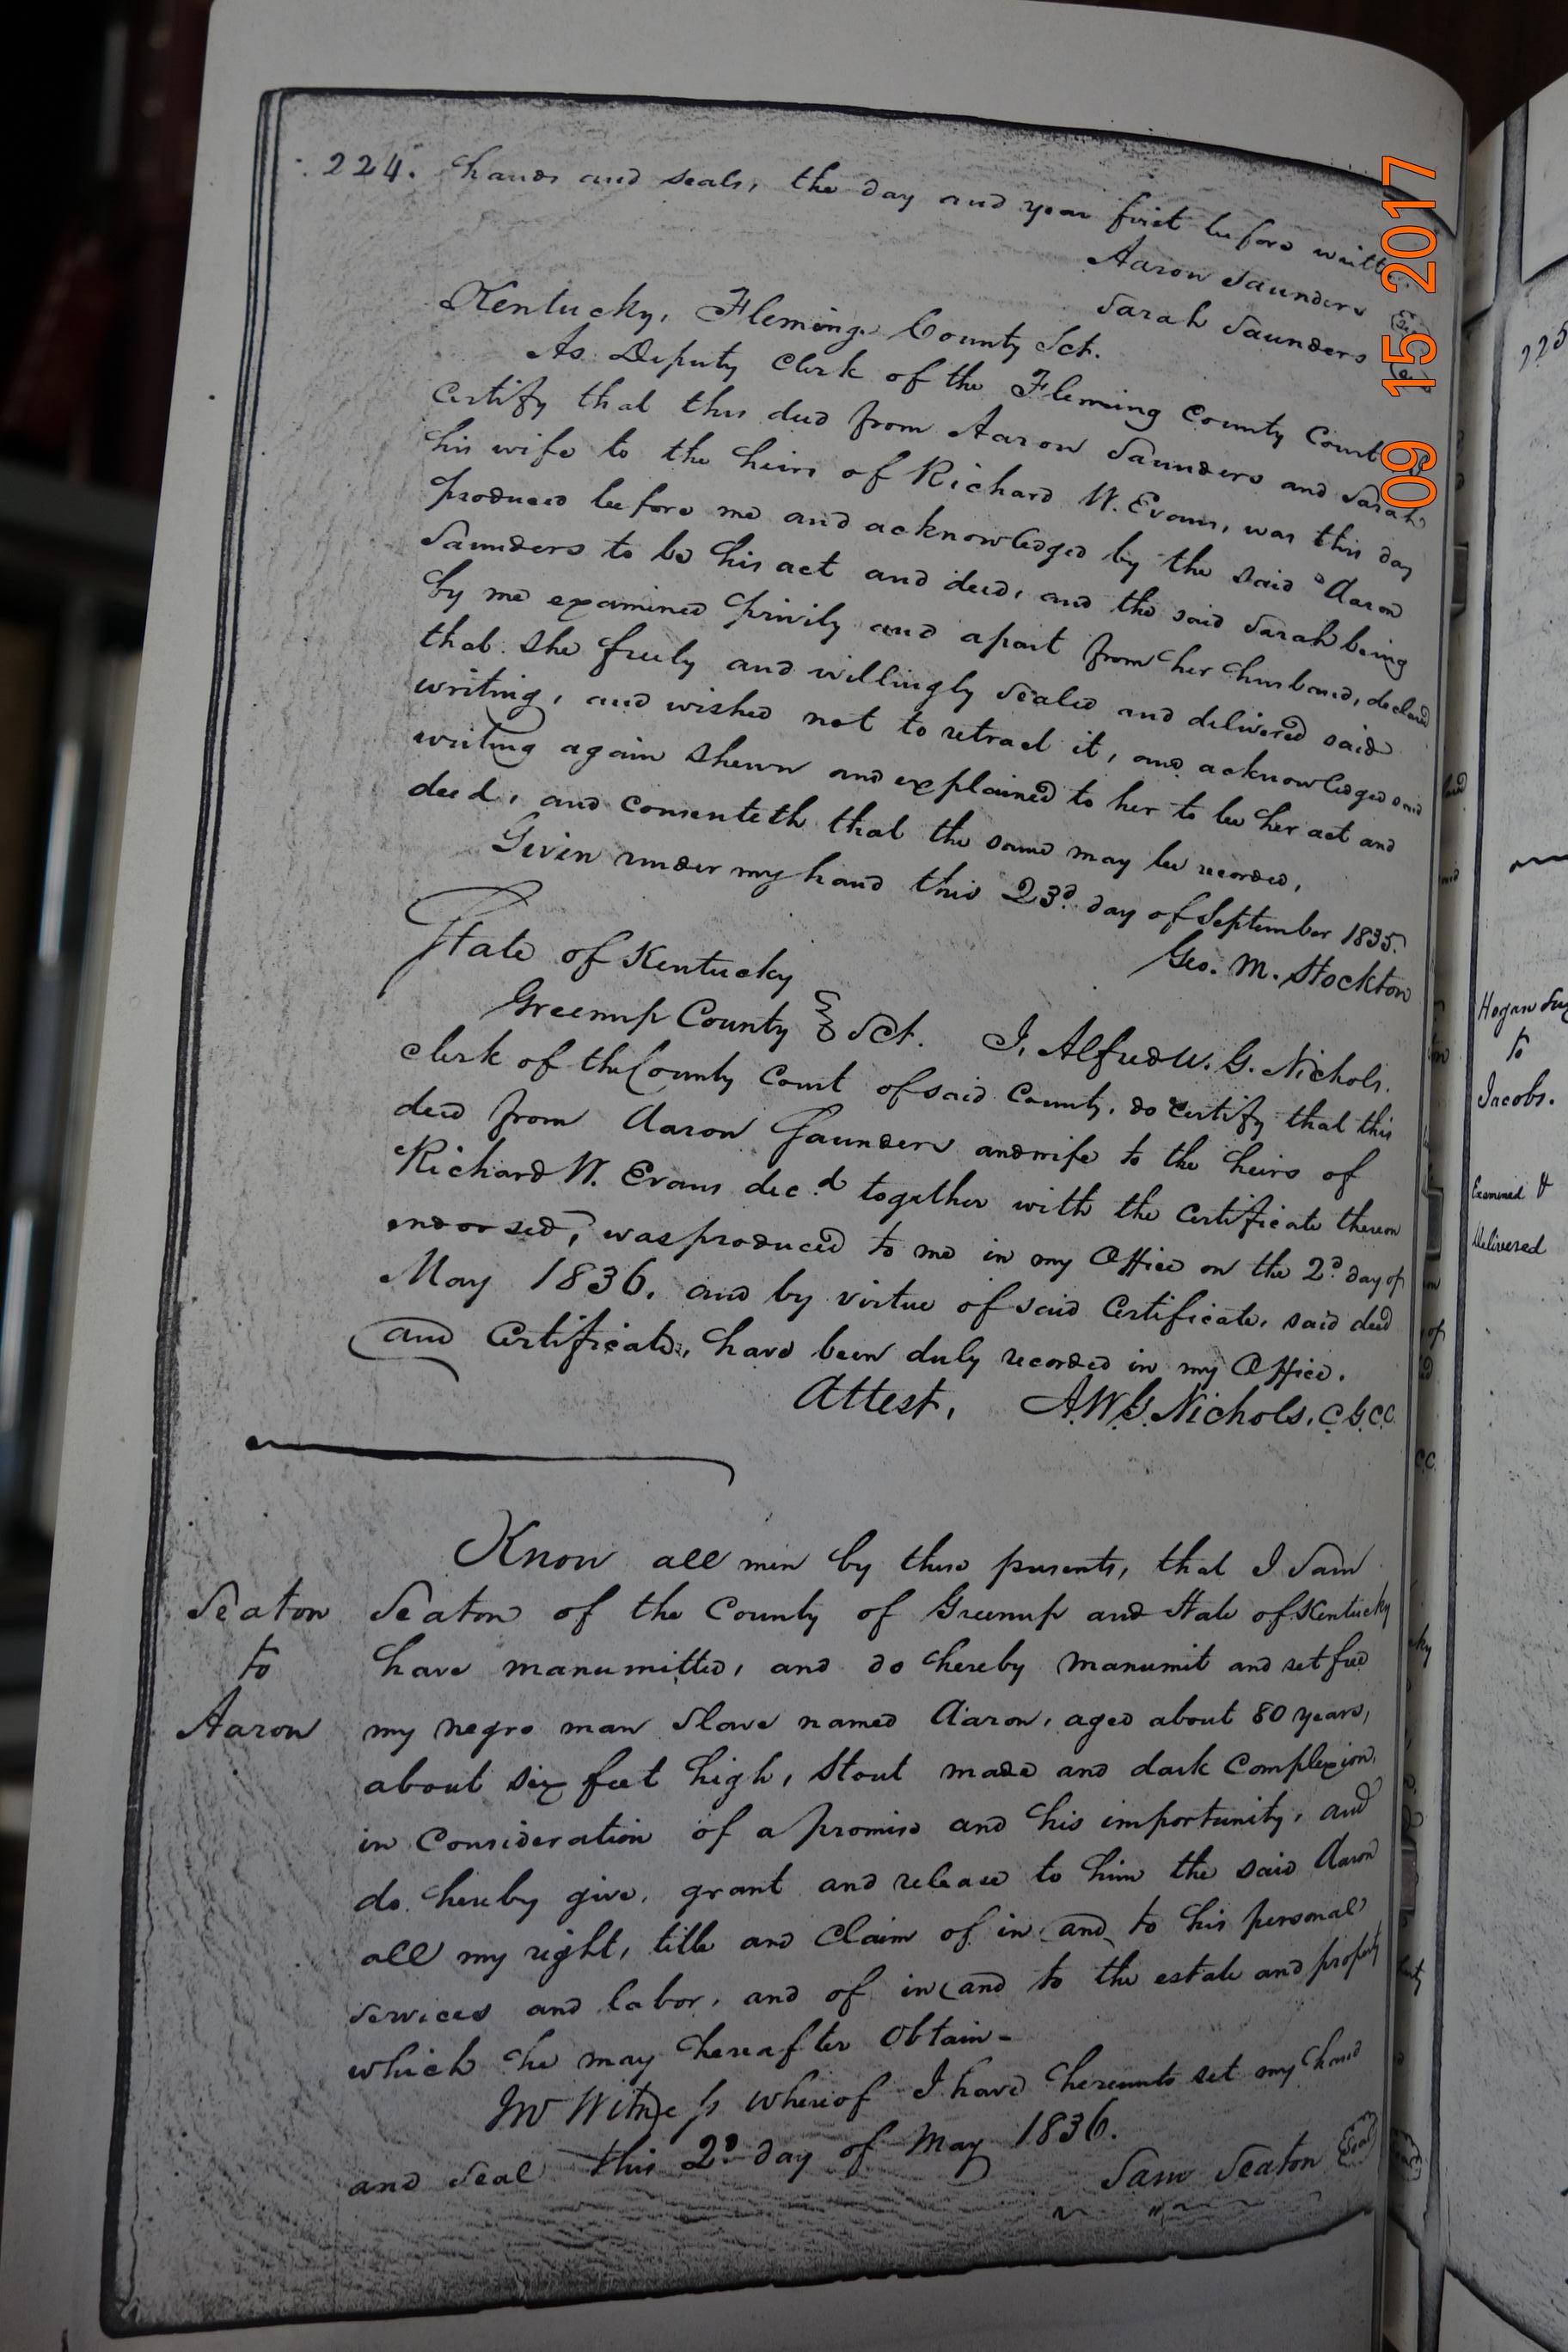 224. hands and seals, the day and year first before writt
Aaron Saunders
Sarah Saunders
Kentucky, Fleming County Sct.
As Deputy Clerk of the Fleming County Court
certify that this deed from Aaron Saunders and Sarah
his wife to the heirs of Richard W. Evans, was this day
produced before me and acknowledged by the said Aaron
Saunders to be his act and deed, and the said Sarah being
by me examined privily and apart from her husband, declared
that she freely and willingly sealed and delivered said
writing, and wished not to retract it, and acknowledged said
writing again shewn and explained to her to be her act and
deed, and consenteth that the same may be recorded,
Given under my hand this 23d. day of September 1835.
Geo. M. Stockton
State of Kentucky
Greenup County } Sct. I, Alfred W. G. Nichols.
clerk of the County Court of said County, do certify that this
deed from Aaron Saunders and wife to the heirs of
Richard W. Evans dec.d together with the certificate thereon
endorsed, was produced to me in my Office on the 2d. day of
May 1836. and by virtue of said Certificate, said deed
and Certificate, have been duly recorded in my Office.
Attest, A.W.G. Nichols, C.G.C.C.
Know all men by these presents, that I Sam
Seaton of the County of Greenup and State of Kentucky
have manumitted, and do hereby manumit and set free
my negro man slave named Aaron, aged about 80 years,
about six feet high, stout made and dark Complexion,
in Consideration of a promise and his importunity, and
do hereby give, grant and release to him the said Aaron
all my right, title and Claim of in and to his personal
services and labor, and of in and to the estate and property
which he may hereafter Obtain-
In Witness whereof I have hereunto set my hand
and Seal this 2d day of May 1836.
Sam Seaton Seal
Seaton
to
Aaron
09 15 2017
225
to
Jacobs.
Examined &
Delivered